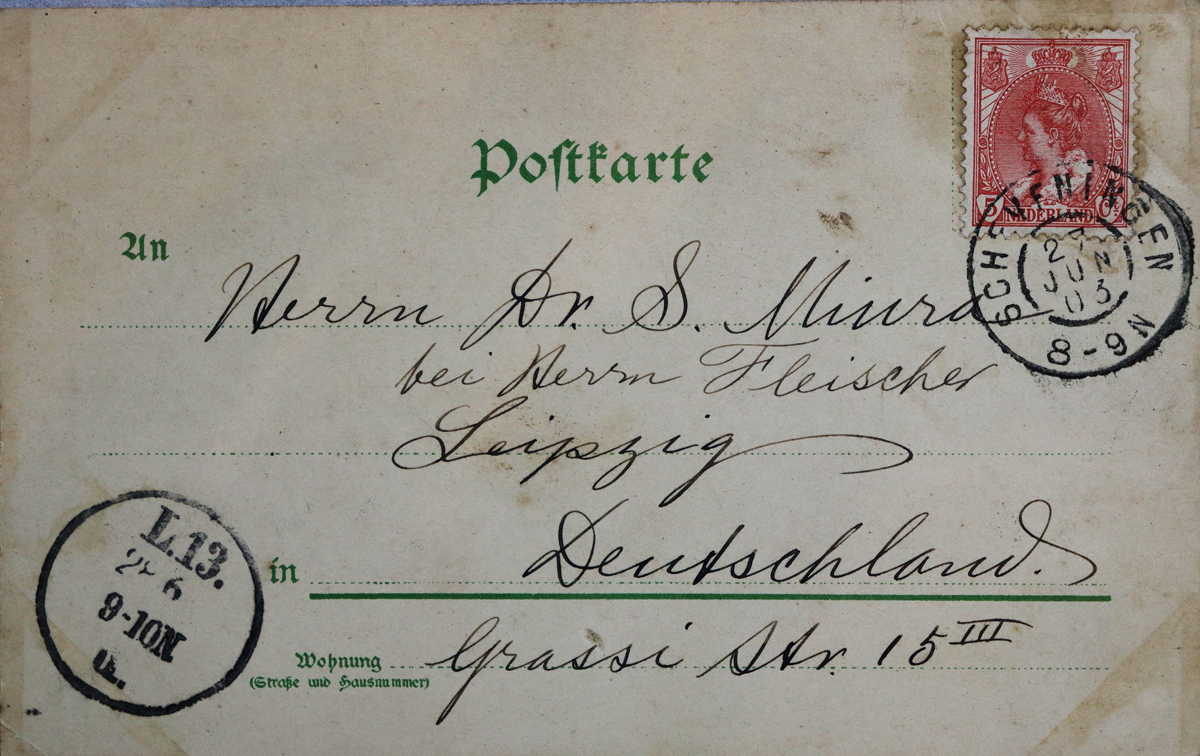 Postkarte
5 NEDERLAND Ct
SCHEVENINGEN
JUN
03
8-9 N
An
Herrn Dr. S. Miura
bei Herrn Fleischer
Leipzig
in Deutschland.
Wohnung Grassi Str. 15 III
(Straße und Hausnummer)
L.13.
9-10N